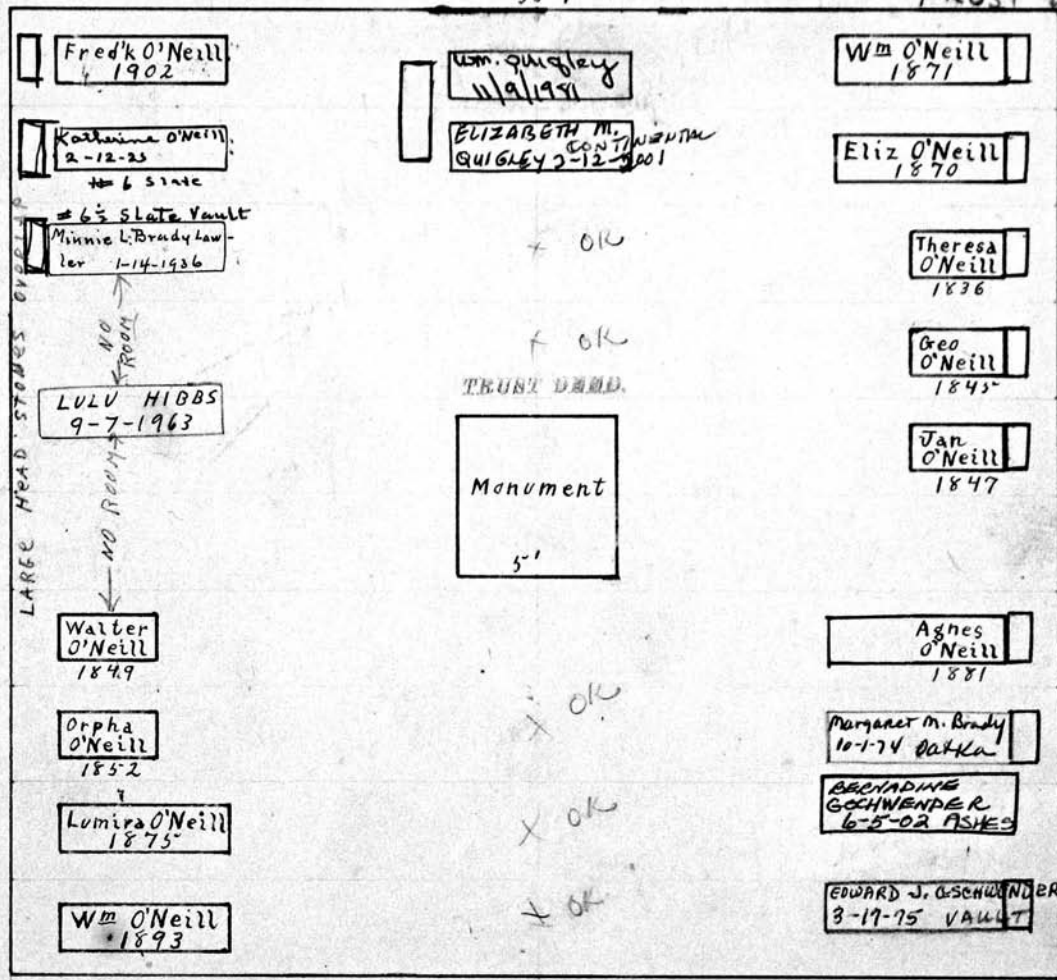 Fred'k O'Neill
1902
Katherine O'Neill
2-12-23
# 6 Slate
# 6½ Slate Vault
Minnie L. Brady Law-
ler 1-14-1936
NO
ROOM
LULU HIBBS
9-7-1963
NO ROOM
LARGE HEAD STONES OVERLAP
Walter
O'Neill
1849
Orpha
O'Neill
1852
Lumira O'Neill
1875
Wm O'Neill
1893
Wm. Quigley
11/9/1981
ELIZABETH M.
CONTINENTAL
QUIGLEY 2-12-2001
+ OK
+ OK
TRUST DEED.
Monument
5'
X OK
X OK
X OK
Wm O'Neill
1871
Eliz O'Neill
1870
Theresa
O'Neill
1836
Geo
O'Neill
1845
Jan
O'Neill
1847
Agnes
O'Neill
1881
Margaret M. Brady
10-1-74
BERNADINE
GSCHWENDER
6-5-02 ASHES
EDWARD J. GSCHWENDER
3-17-75 VAULT